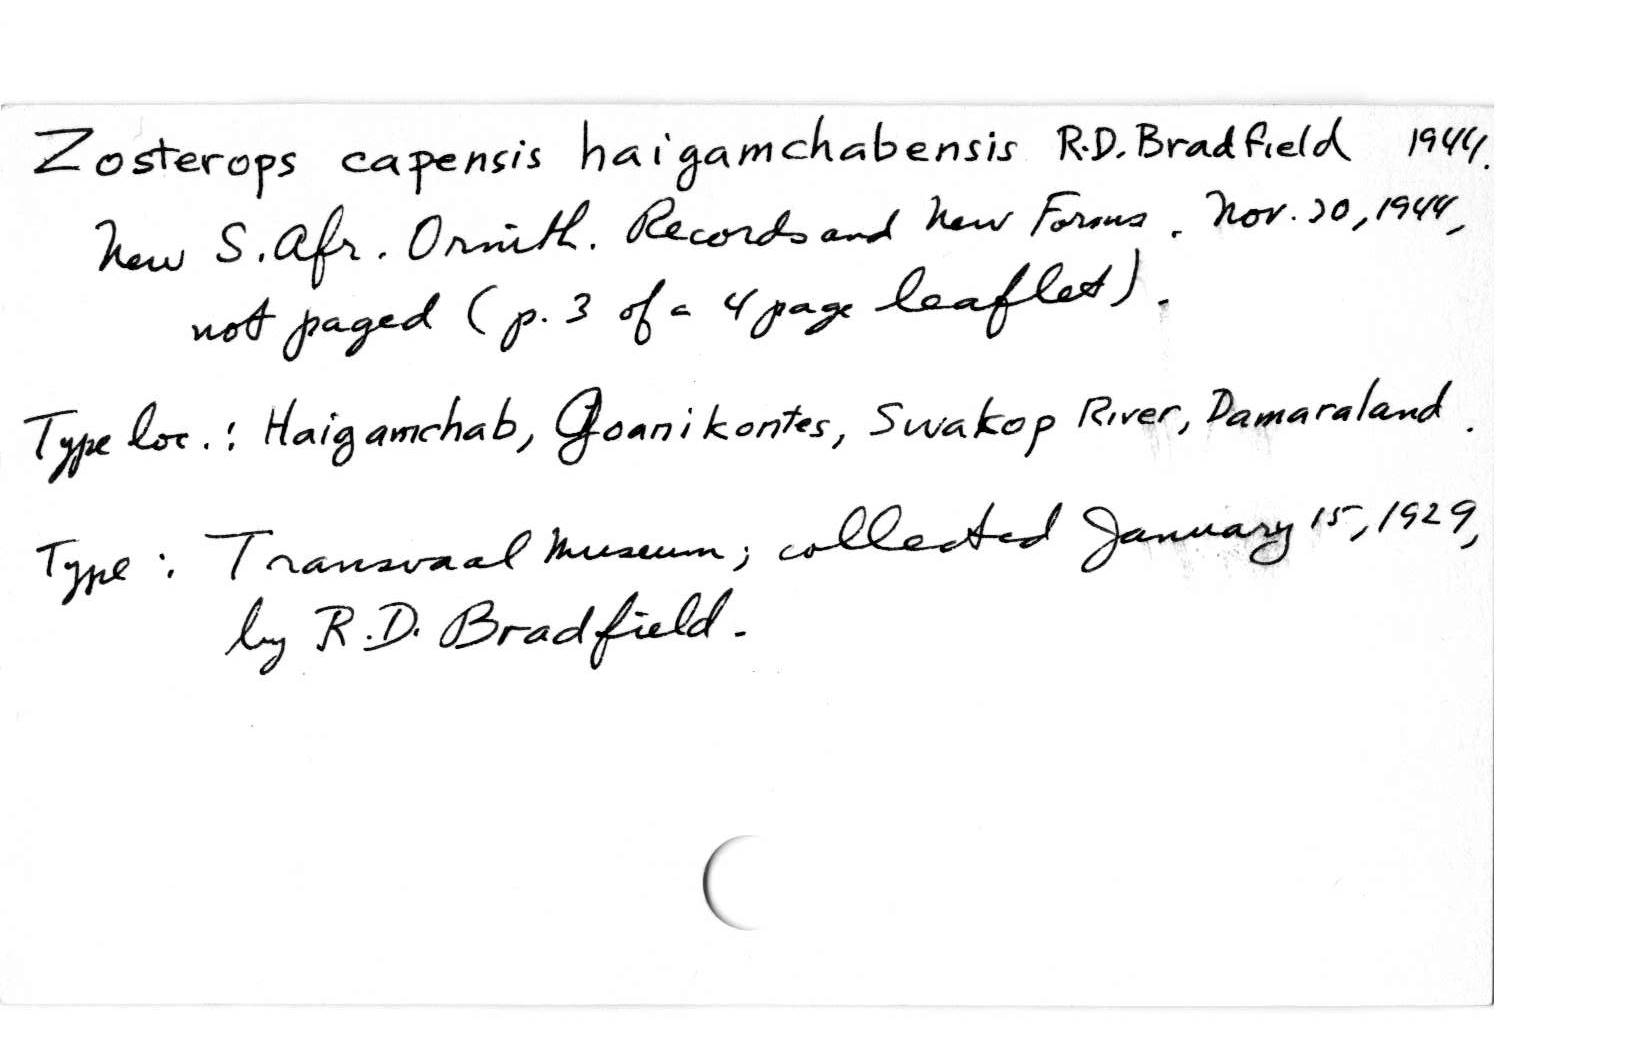 Zosterops capensis haigamchabensis R.D. Bradfield 1944.
New S. Afr. Ornith. Records and New Forms. Nov. 20, 1944,
not paged (p. 3 of a 4 page leaflet).
Type loc.: Haigamchab, Goanikontes, Swakop River, Damaraland.
Type: Transvaal Museum; collected January 15, 1929,
by R.D. Bradfield.